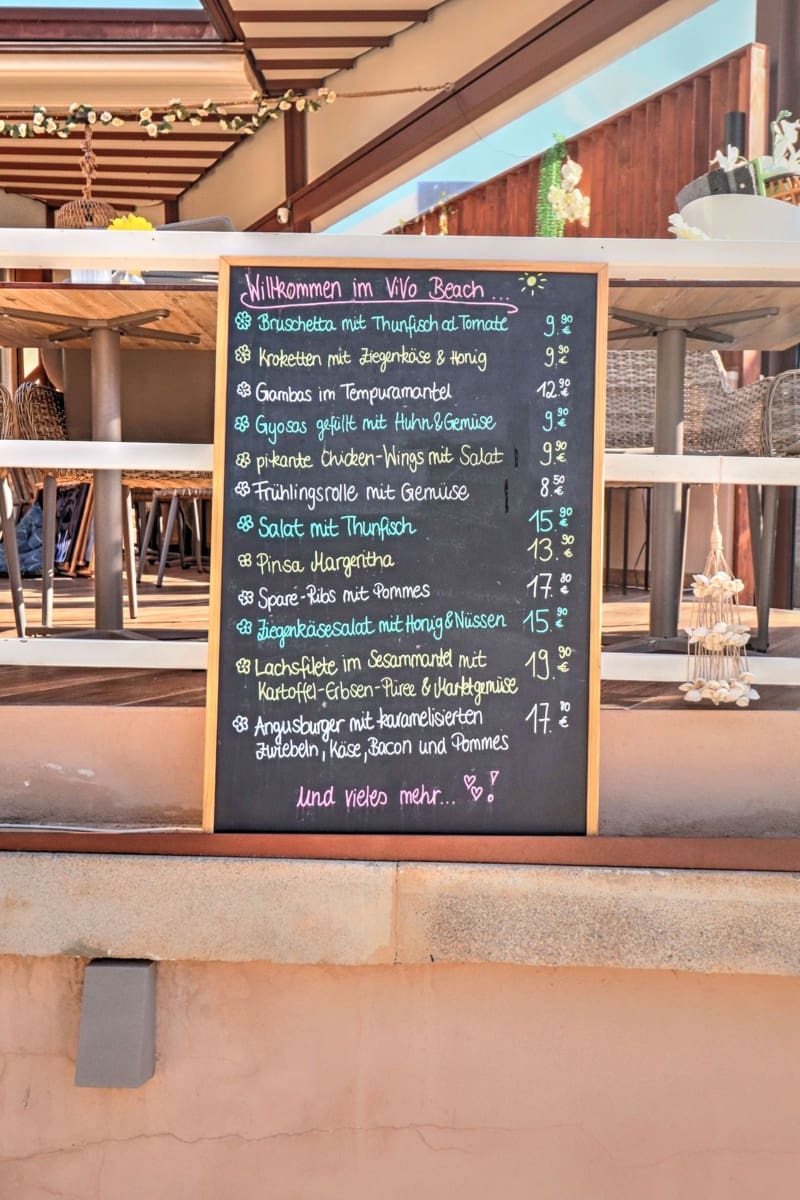 Willkommen im ViVo Beach ...
Bruschetta mit Thunfisch od. Tomate 9.90 €
Kroketten mit Ziegenkäse & Honig 9.90 €
Gambas im Tempuramantel 12.90 €
Gyosas gefüllt mit Huhn & Gemüse 9.90 €
pikante Chicken-Wings mit Salat 9.90 €
Frühlingsrolle mit Gemüse 8.50 €
Salat mit Thunfisch 15.90 €
Pinsa Margeritha 13.90 €
Spare-Ribs mit Pommes 17.80 €
Ziegenkäsesalat mit Honig & Nüssen 15.90 €
Lachsfilete im Sesammantel mit 19.90 €
Kartoffel-Erbsen-Püree & Marktgemüse
Angusburger mit karamelisierten 17.80 €
Zwiebeln, Käse, Bacon und Pommes
Und vieles mehr... !